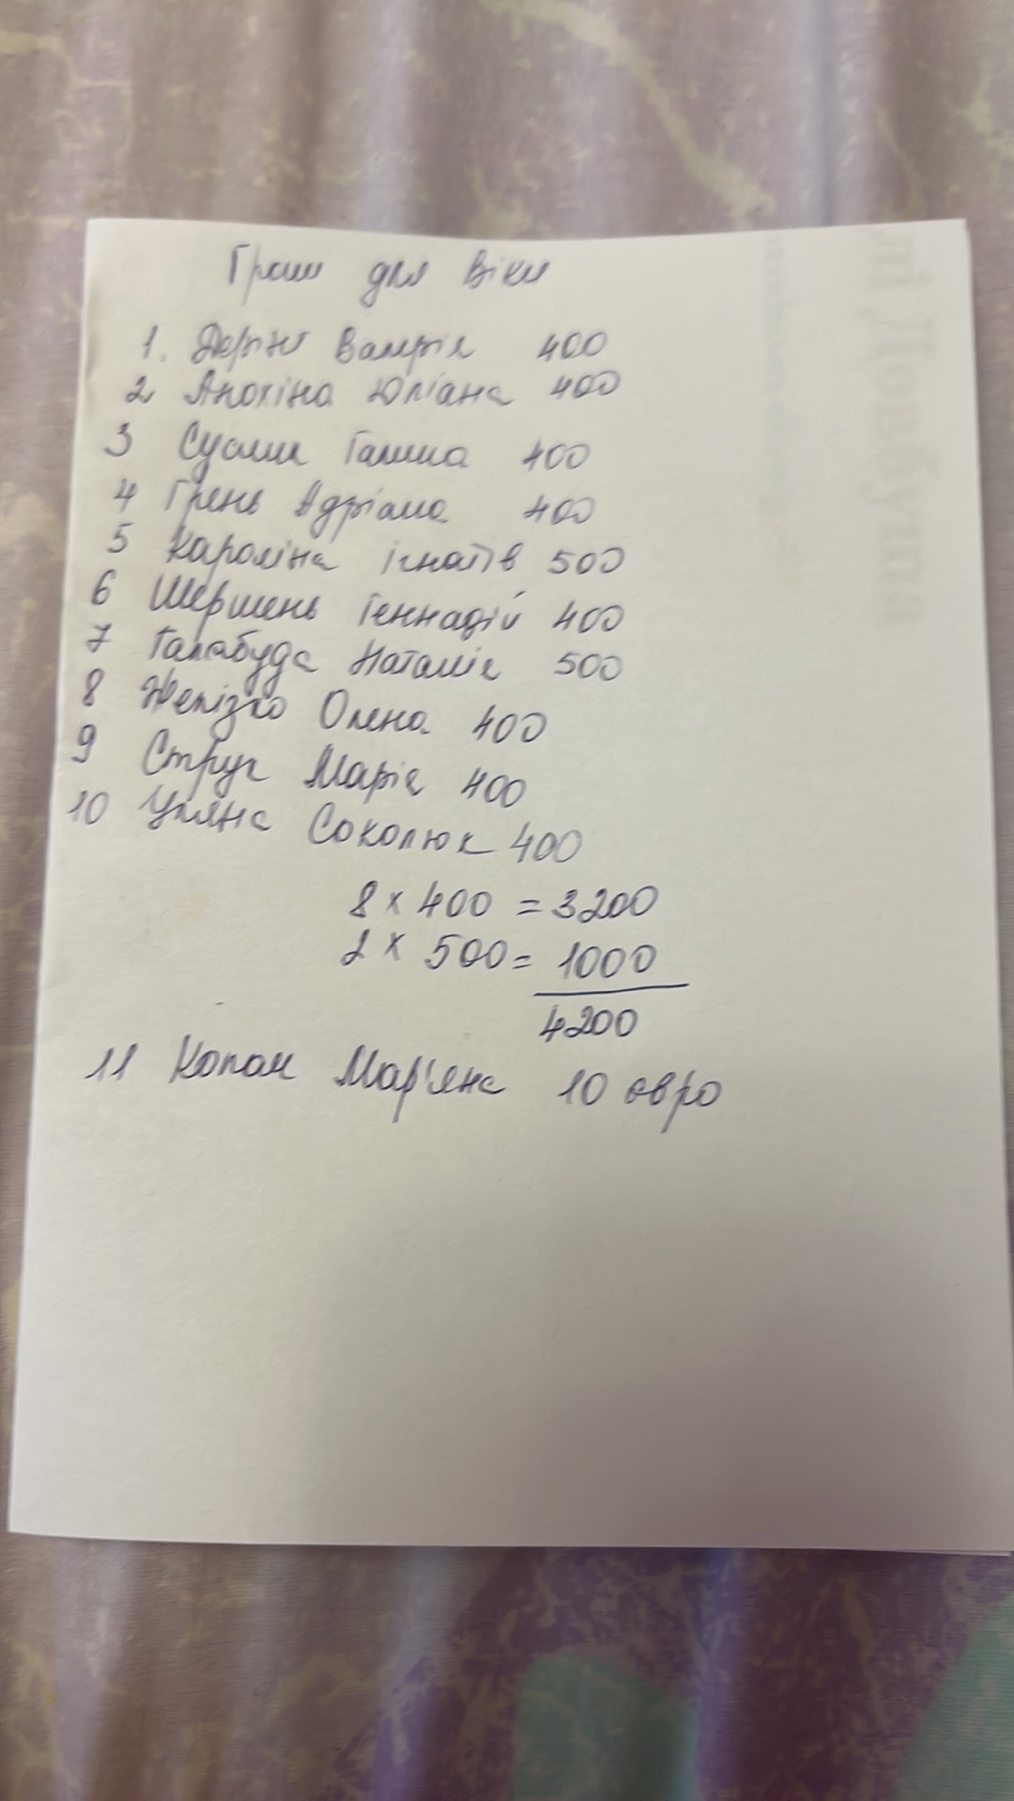 Гроші для Віки
1. Дерій Валерія 400
2 Анохіна Юліана 400
3 Галина 400
4 Грень Адріана 400
5 Кароліна Ігнатів 500
6 Шершень Геннадій 400
7 Галабуда Наталія 500
8 Желізко Олена 400
9 Струк Марія 400
10 Уляна Соколюк 400
8 x 400 = 3200
2 x 500 = 1000
4200
11 Копач Мар'яна 10 євро